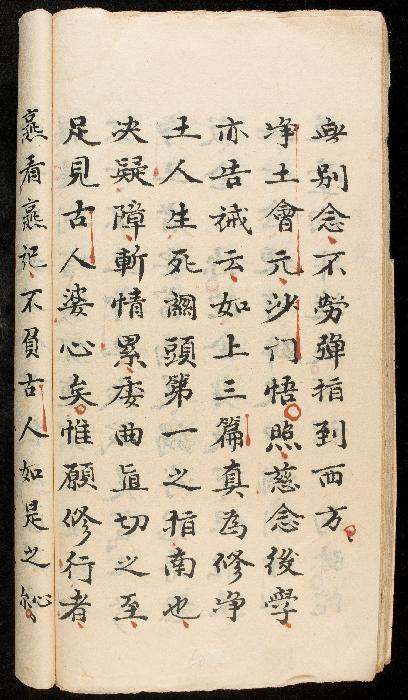 無別念不勞彈指到西方
净土會元沙门悟照慈念後學
亦告誡云如上三篇真為修净
土人生死関頭第一之指南也
决疑障斬情累委曲真切之至
足見古人婆心矣惟願修行者
熏看熏記不負古人如是之心